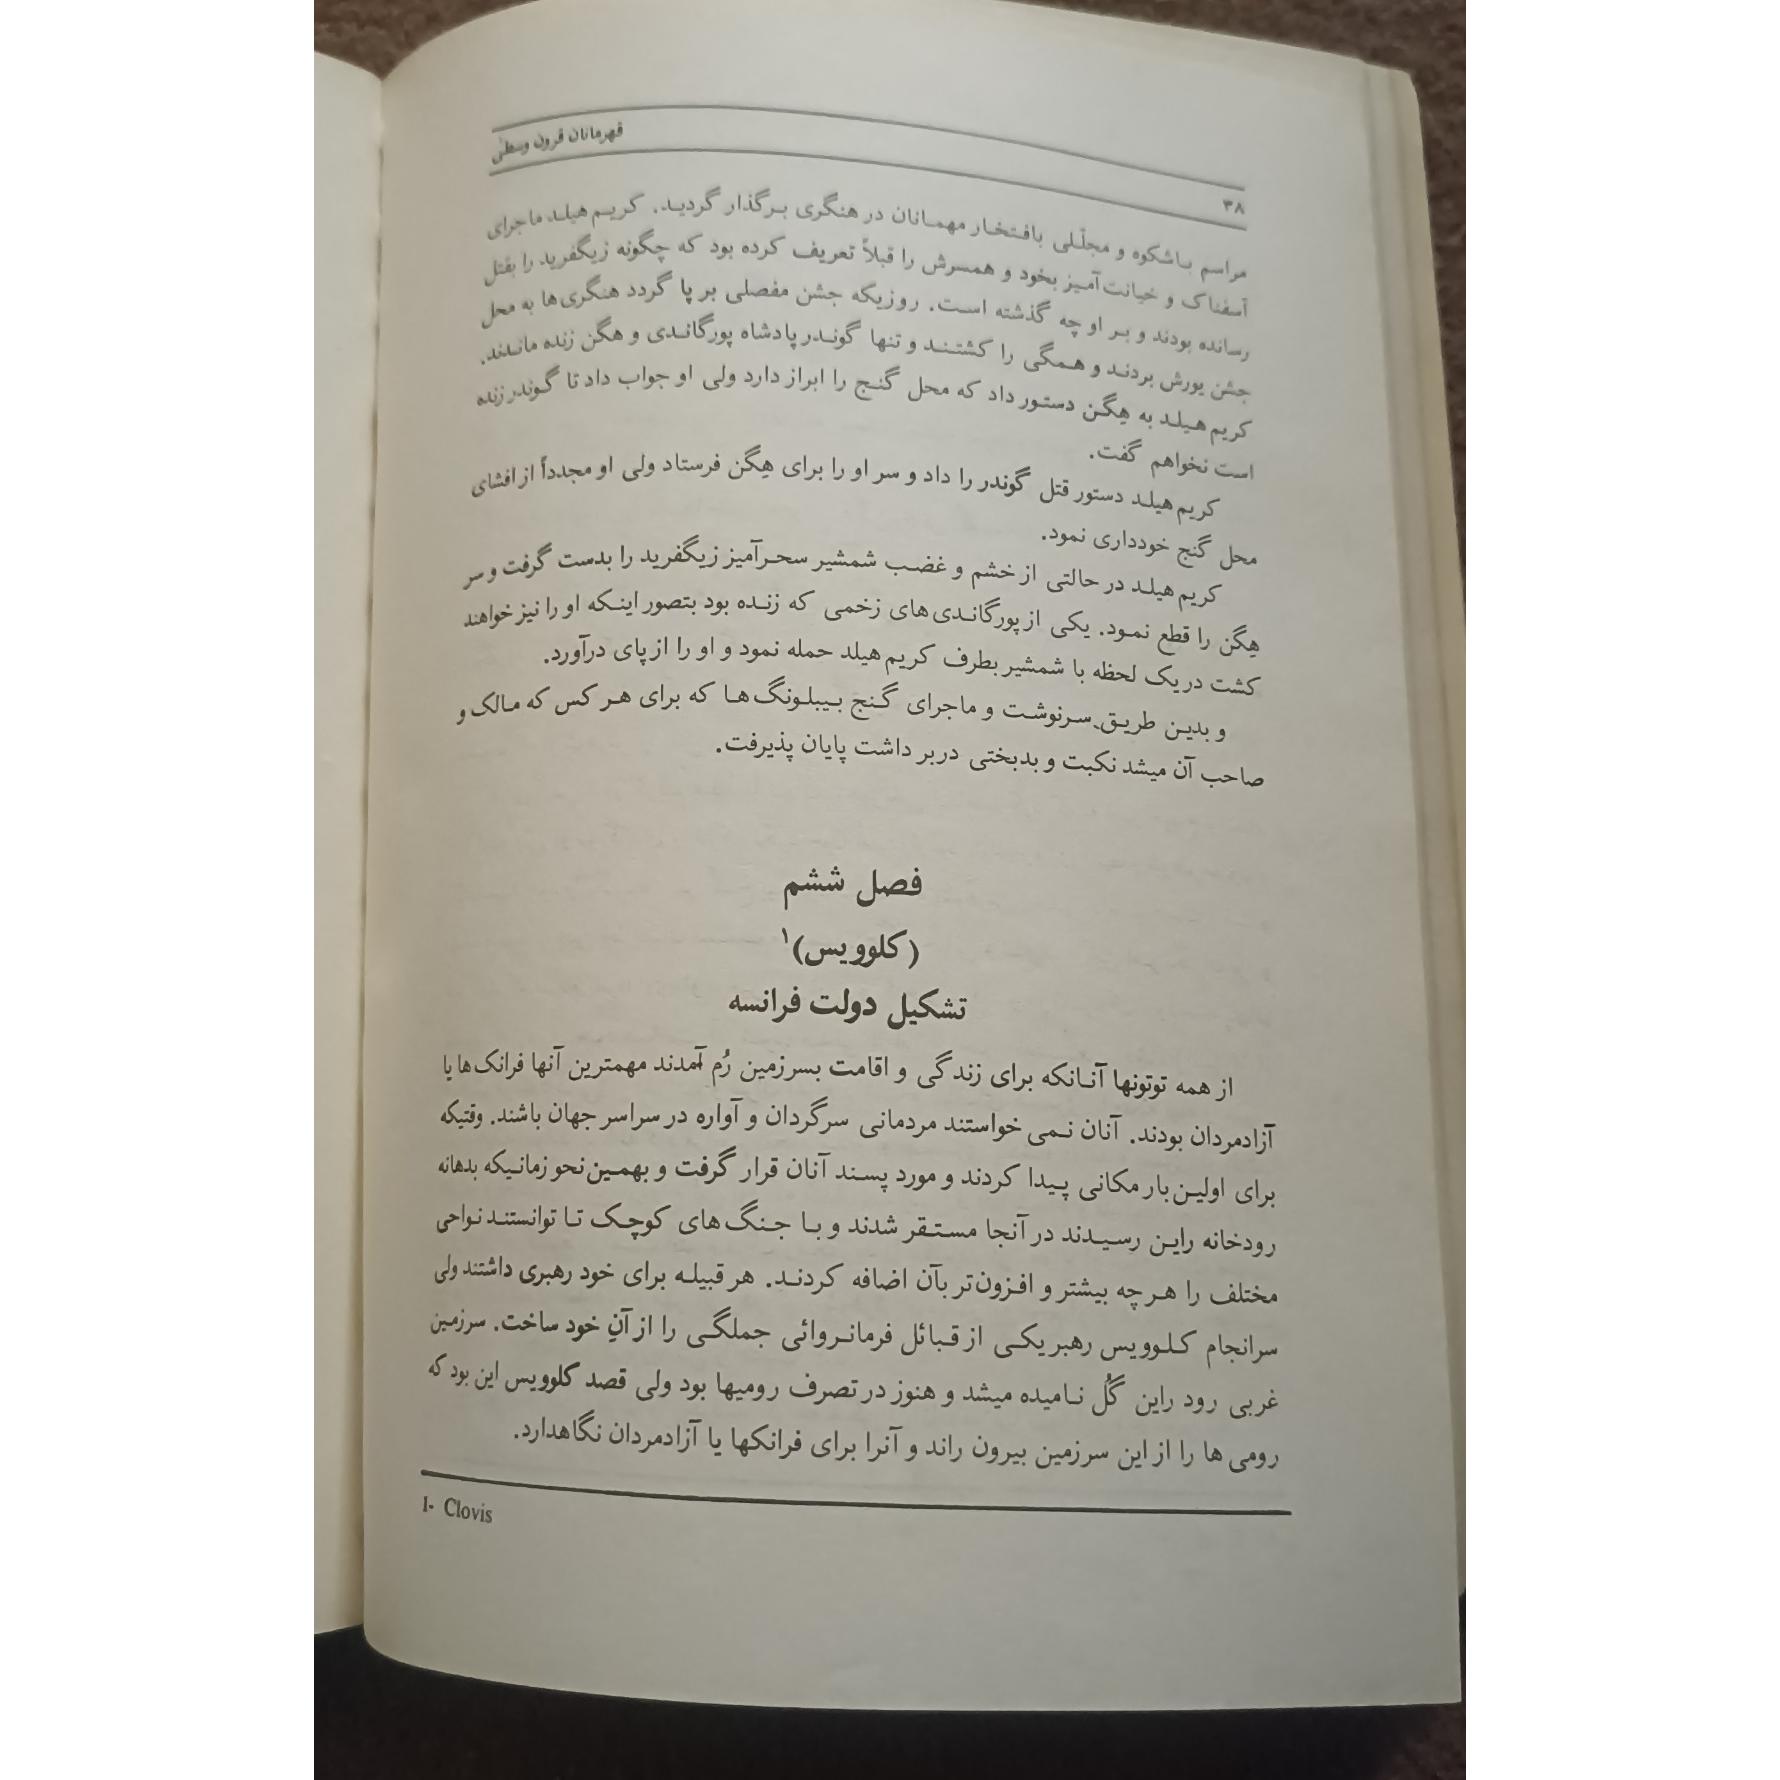 قهرمانان قرون وسطی
۳۸
مراسم باشکوه و مجلّلی بافتخار مهمانان در هنگری برگذار گردید. کریم هیلد ماجرای
اسفناک و خیانت‌آمیز بخود و همسرش را قبلاً تعریف کرده بود که چگونه زیگفرید را بقتل
رسانده بودند و بر او چه گذشته است. روزیکه جشن مفصلی بر پا گردد هنگری‌ها به محل
جشن یورش بردند و همگی را کشتند و تنها گوندر پادشاه پورگاندی و هگن زنده ماندند.
کریم هیلد به هِگن دستور داد که محل گنج را ابراز دارد ولی او جواب داد تا گوندر زنده
است نخواهم گفت.
کریم هیلد دستور قتل گوندر را داد و سر او را برای هِگن فرستاد ولی او مجدداً از افشای
محل گنج خودداری نمود.
کریم هیلد در حالتی از خشم و غضب شمشیر سحرآمیز زیگفرید را بدست گرفت و سر
هِگن را قطع نمود. یکی از پورگاندی‌های زخمی که زنده بود بتصور اینکه او را نیز خواهند
کشت در یک لحظه با شمشیر بطرف کریم هیلد حمله نمود و او را از پای درآورد.
و بدین طریق سرنوشت و ماجرای گنج بیبلونگ‌ها که برای هر کس که مالک و
صاحب آن میشد نکبت و بدبختی در بر داشت پایان پذیرفت.
فصل ششم
(کلوویس)۱
تشکیل دولت فرانسه
از همه توتونها آنانکه برای زندگی و اقامت بسرزمین رُم آمدند مهمترین آنها فرانک‌ها یا
آزادمردان بودند. آنان نمی‌خواستند مردمانی سرگردان و آواره در سراسر جهان باشند. وقتیکه
برای اولین‌بار مکانی پیدا کردند و مورد پسند آنان قرار گرفت و بهمین نحو زمانیکه بدهانه
رودخانه راین رسیدند در آنجا مستقر شدند و با جنگ‌های کوچک تا توانستند نواحی
مختلف را هر چه بیشتر و افزون‌تر بآن اضافه کردند. هر قبیله برای خود رهبری داشتند ولی
سرانجام کلوویس رهبر یکی از قبائل فرمانروائی جملگی را از آنِ خود ساخت. سرزمین
غربی رود راین گُل نامیده میشد و هنوز در تصرف رومیها بود ولی قصد کلوویس این بود که
رومی ها را از این سرزمین بیرون راند و آنرا برای فرانکها یا آزادمردان نگاهدارد.
I- Clovis